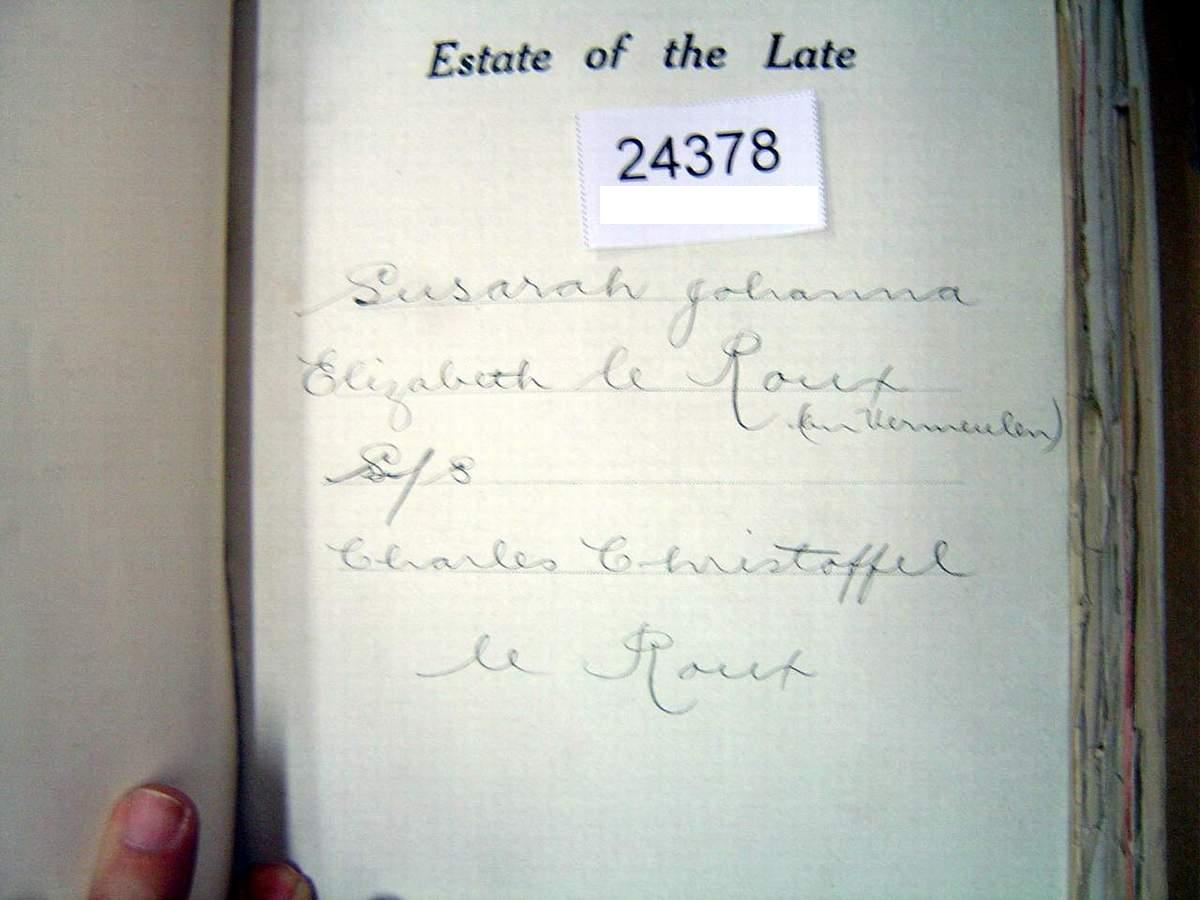 Estate of the Late
24378
Susarah Johanna
Elizabeth le Roux
(born Vermeulen)
S/S
Charles Christoffel
le Roux